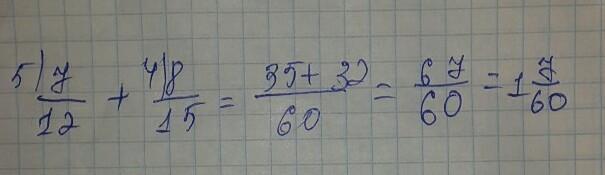 5) 7/12 + 4) 8/15 = (35 + 32)/60 = 67/60 = 1 7/60